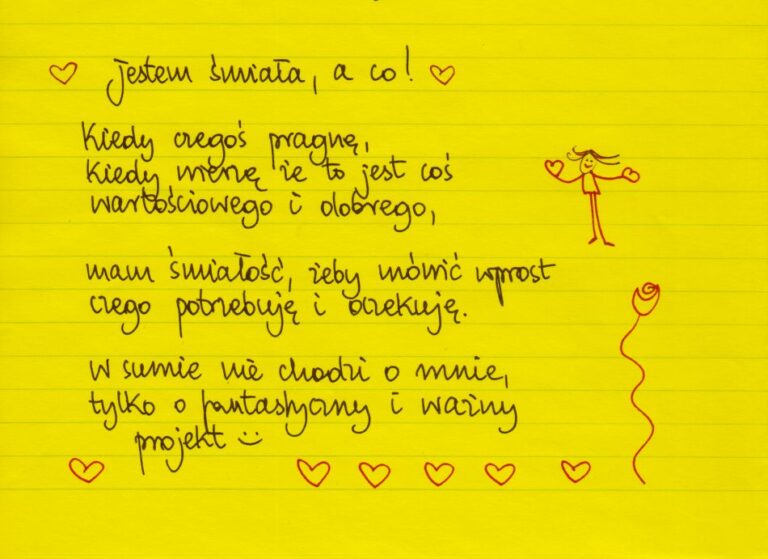 Jestem śmiała, a co!
Kiedy czegoś pragnę,
kiedy wierzę że to jest coś
wartościowego i dobrego,
mam śmiałość, żeby mówić wprost
czego potrzebuję i oczekuję.
W sumie nie chodzi o mnie,
tylko o fantastyczny i ważny
projekt :)